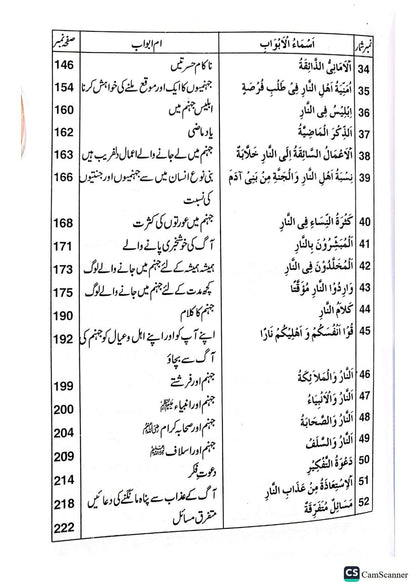 نمبر شمار اَسْمَاءُ الْاَبْوَابِ نام ابواب صفحہ نمبر
34 اَلْاَمَانِیُّ الذَّائِقَةُ ناکام حسرتیں 146
35 اُمْنِيَةُ اَهْلِ النَّارِ فِیْ طَلَبِ فُرْصَةٍ جہنمیوں کا ایک اور موقع ملنے کی خواہش کرنا 154
36 اِبْلِيْسُ فِی النَّارِ ابلیس جہنم میں 160
37 اَلذِّكَرُ الْمَاضِيَةُ یاد ماضی 162
38 اَلْاَعْمَالُ السَّائِقَةُ اِلَی النَّارِ خَلَّابَةٌ جہنم میں لے جانے والے اعمال دلفریب ہیں 163
39 نِسْبَةُ اَهْلِ النَّارِ وَالْجَنَّةِ مِنْ بَنِیْ آدَمَ بنی نوع انسان میں سے جہنمیوں اور جنتیوں 166
کی نسبت
40 كَثْرَةُ النِّسَاءِ فِی النَّارِ جہنم میں عورتوں کی کثرت 168
41 اَلْمُبَشَّرُوْنَ بِالنَّارِ آگ کی خوشخبری پانے والے 171
42 اَلْمُخَلَّدُوْنَ فِی النَّارِ ہمیشہ ہمیشہ کے لئے جہنم میں جانے والے لوگ 173
43 وَارِدُوا النَّارِ مُؤَقَّتًا کچھ مدت کے لئے جہنم میں جانے والے لوگ 175
44 كَلَامُ النَّارِ جہنم کا کلام 190
45 قُوْا اَنْفُسَكُمْ وَ اَهْلِيْكُمْ نَارًا اپنے آپ کو اور اپنے اہل و عیال کو جہنم کی 192
آگ سے بچاؤ
46 اَلنَّارُ وَالْمَلَائِكَةُ جہنم اور فرشتے 199
47 اَلنَّارُ وَالْاَنْبِيَاءُ جہنم اور انبیاء 200
48 اَلنَّارُ وَالصَّحَابَةُ جہنم اور صحابہ کرام 204
49 اَلنَّارُ وَالسَّلَفُ جہنم اور اسلاف 209
50 دَعْوَةُ التَّفْكِيْرِ دعوت فکر 214
51 اَلْاِسْتِعَاذَةُ مِنْ عَذَابِ النَّارِ آگ کے عذاب سے پناہ مانگنے کی دعائیں 218
52 مَسَائِلُ مُتَفَرِّقَةٌ متفرق مسائل 222
CS CamScanner